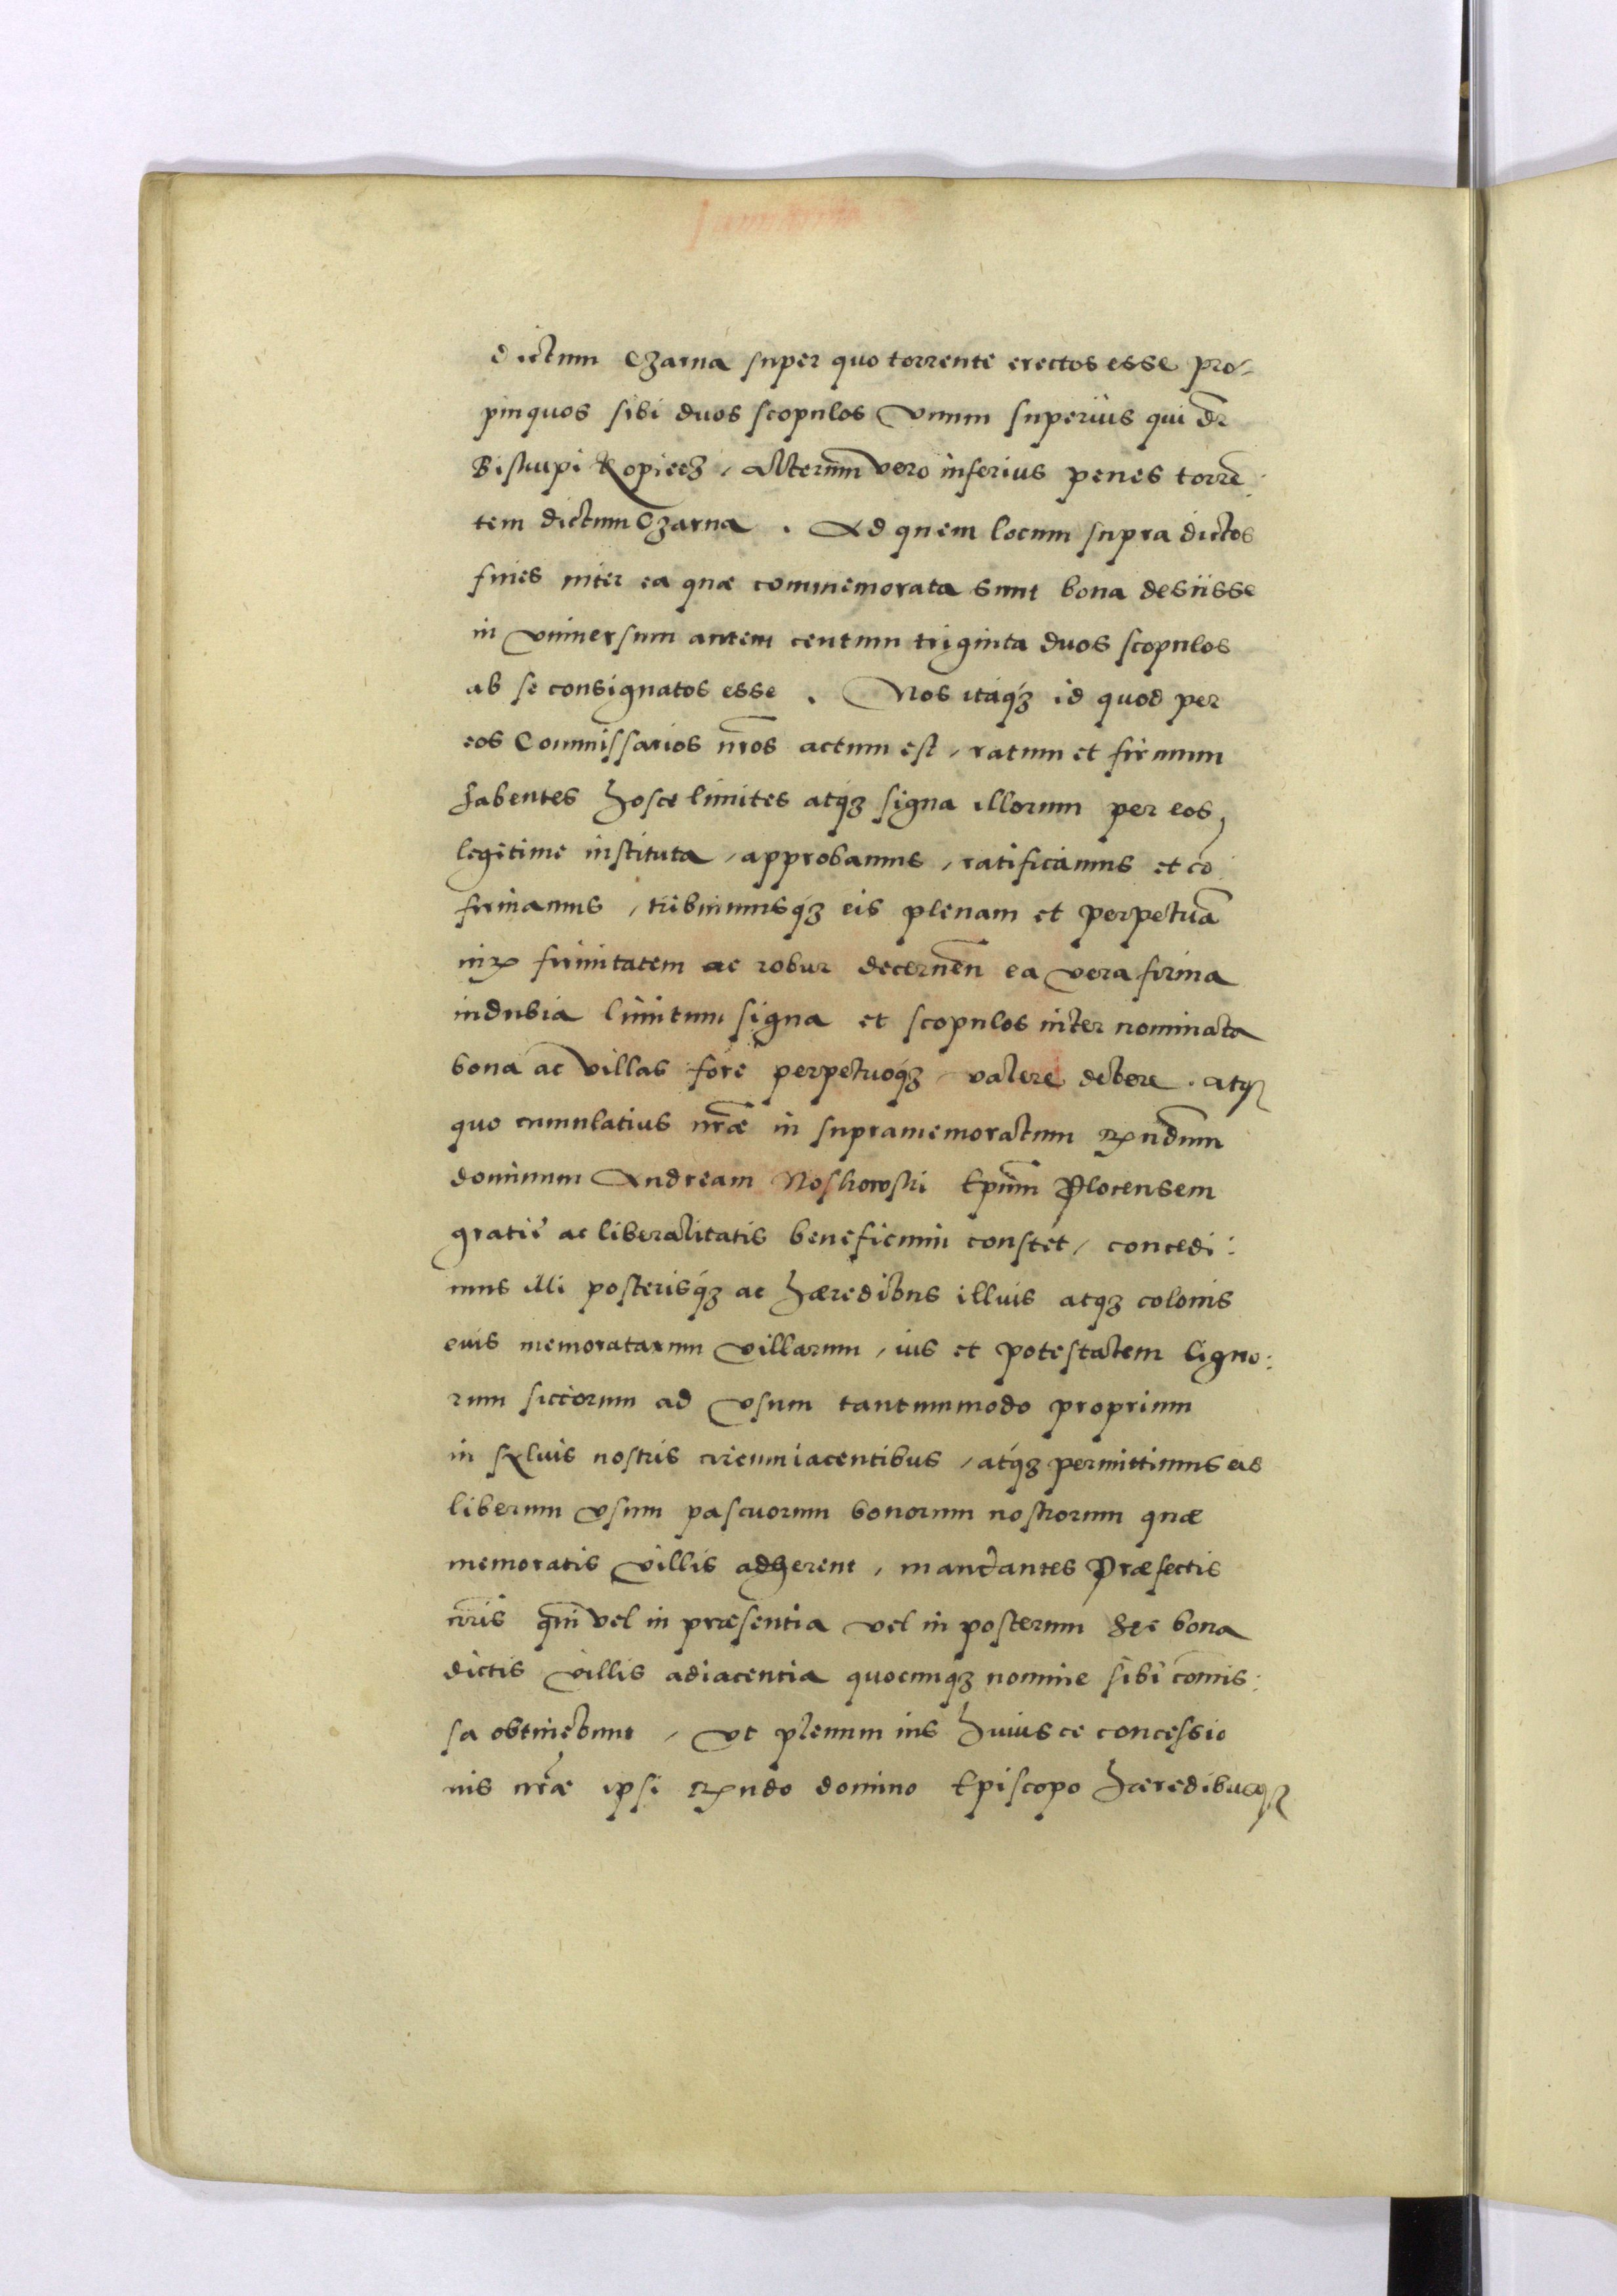 dictum Czarna super quo torrente erectos esse pro-
pinquos sibi duos scopulos vnum superius qui dr̄
Biskupi Kopiecz, Alterum vero inferius penes torrē:
tem dictum Czarna. Ad quem locum supra dictos
fines inter ea quæ commemorata sunt bona desiisse
in vniuersum autem centum triginta duos scopulos
ab se consignatos esse. Nos itaqꝫ id quod per
eos Commissarios nr̄os actum est, ratum et firmum
habentes hosce limites atqꝫ signa illorum per eos
legitime instituta, approbamus, ratificamus et cō
firmamus, tribuimusqꝫ eis plenam et perpetuā
firmitatem ac robur decernen̄ ea vera firma
indubia limitum signa et scopulos inter nominata
bona ac villas fore perpetuoqꝫ valere debere. atqꝫ
quo cumulatius nr̄æ in supramemoratum Rndum̄
dominum Andream Noskowski Ep̄um Plocensem
gratiæ ac liberalitatis beneficium constet, concedi:
mus illi posterisqꝫ ac hæredibus illius atqꝫ colonis
eius memoratarum villarum, ius et potestatem ligno:
rum siccorum ad vsum tantummodo proprium
in syluis nostris circumiacentibus, atqꝫ permittimus eis
liberum vsum pascuorum bonorum nostrorum quæ
memoratis villis adherent, mandantes Præfectis
nr̄is qui vel in præsentia vel in posterum hæc bona
dictis villis adiacentia quocunqꝫ nomine sibi com̄is:
sa obtinebunt, vt plenum ius huiusce concessio
nis nr̄æ ipsi Rndo domino Episcopo hæredibusqꝫ